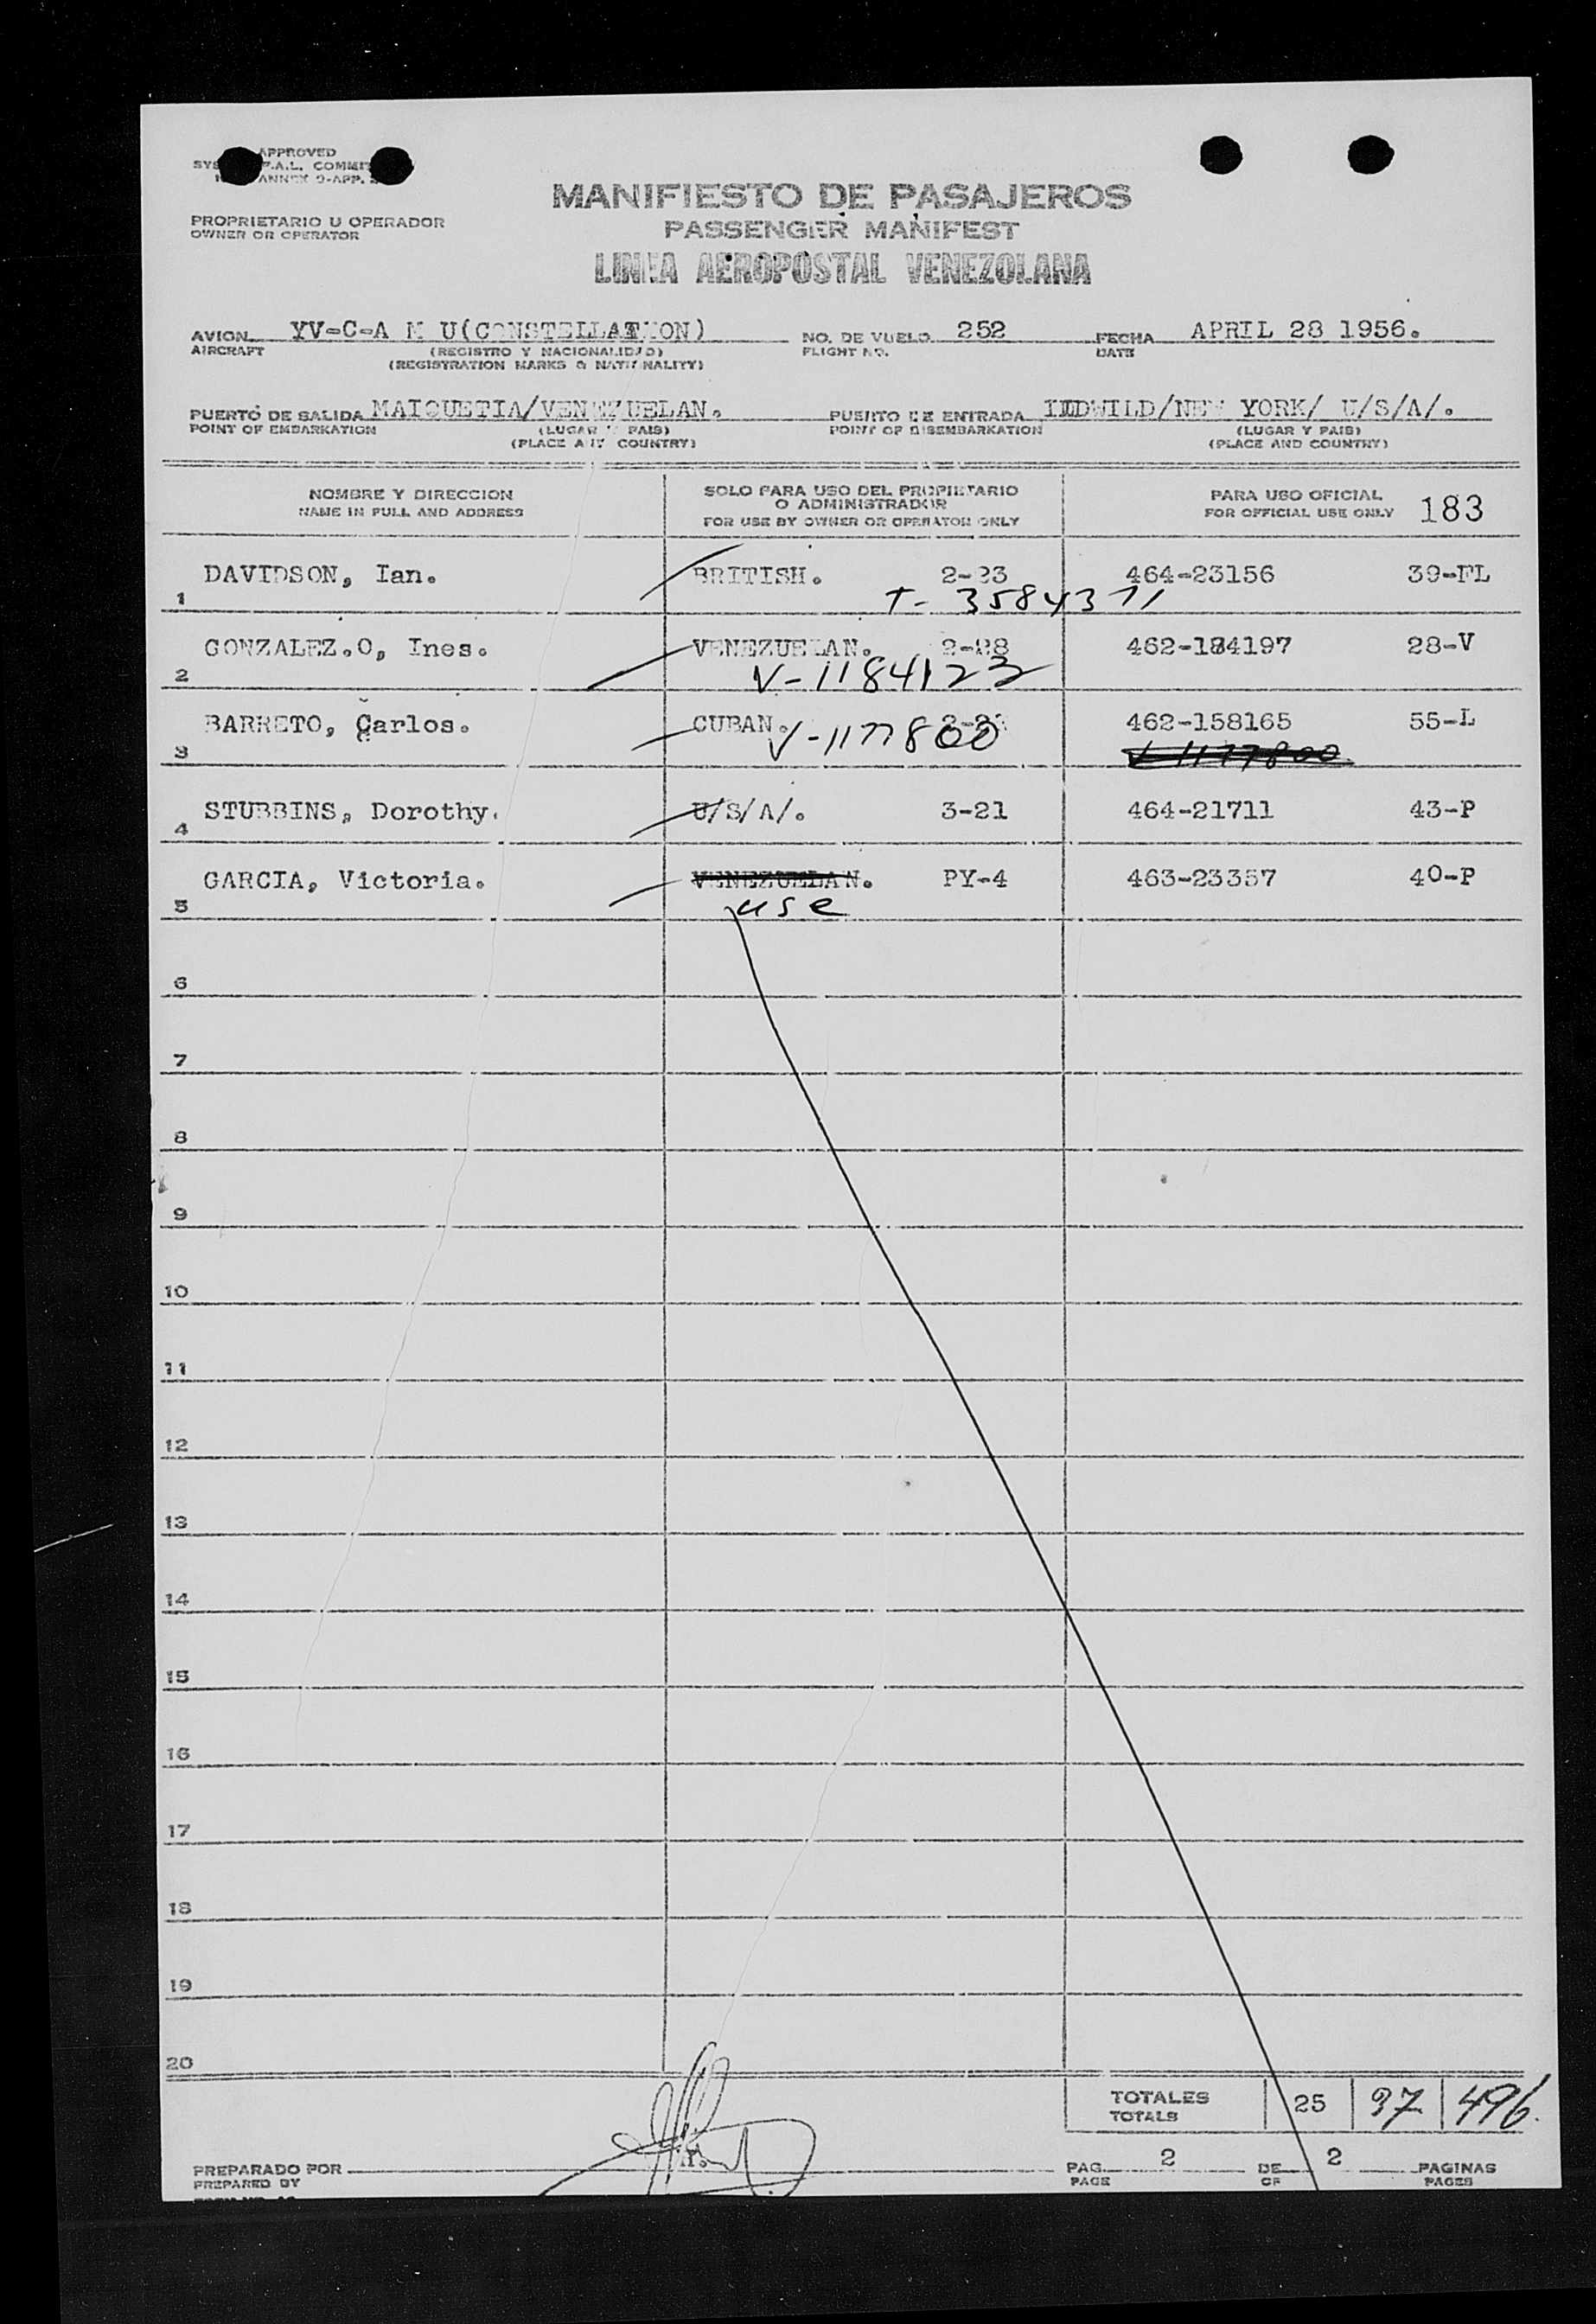 APPROVED
P.A.L. COMMIT
ANNEX 9-APP.
MANIFIESTO DE PASAJEROS
PROPRIETARIO U OPERADOR
OWNER OR OPERATOR
PASSENGER MANIFEST
LINEA AEROPOSTAL VENEZOLANA
AVION YV-C-A M U(CONSTELLATION) NO. DE VUELO 252 FECHA APRIL 28 1956.
AIRCRAFT (REGISTRO Y NACIONALIDAD) FLIGHT NO. DATE
(REGISTRATION MARKS & NATIONALITY)
PUERTO DE SALIDA MAIQUETIA/VENEZUELAN. PUERTO DE ENTRADA IDDWILD/NEW YORK/ U/S/A/.
POINT OF EMBARKATION (LUGAR Y PAIS) POINT OF DISEMBARKATION (LUGAR Y PAIS)
(PLACE AND COUNTRY) (PLACE AND COUNTRY)
NOMBRE Y DIRECCION SOLO PARA USO DEL PROPIETARIO PARA USO OFICIAL 183
O ADMINISTRADOR
NAME IN FULL AND ADDRESS FOR USE BY OWNER OR OPERATOR ONLY FOR OFFICIAL USE ONLY
DAVIDSON, Ian. BRITISH. 2-23 464-23156 39-FL
1 T- 3584371
GONZALEZ.O, Ines. VENEZUELAN. 2-28 462-184197 28-V
2 V-1184123
BARRETO, Carlos. CUBAN. 462-158165 55-L
3 V-1177800 V 1177800
STUBBINS, Dorothy. U/S/A/. 3-21 464-21711 43-P
4
GARCIA, Victoria. VENEZUELAN. PY-4 463-23357 40-P
5 use
6
7
8
9
10
11
12
13
14
15
16
17
18
19
20
TOTALES 25 37 496.
TOTALS
PREPARADO POR PAG. 2 DE 2 PAGINAS
PREPARED BY PAGE OF PAGES